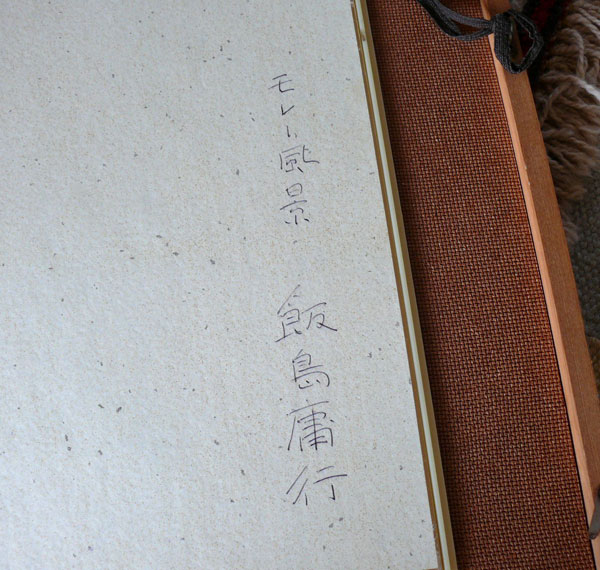 モレー風景. 飯島庸行